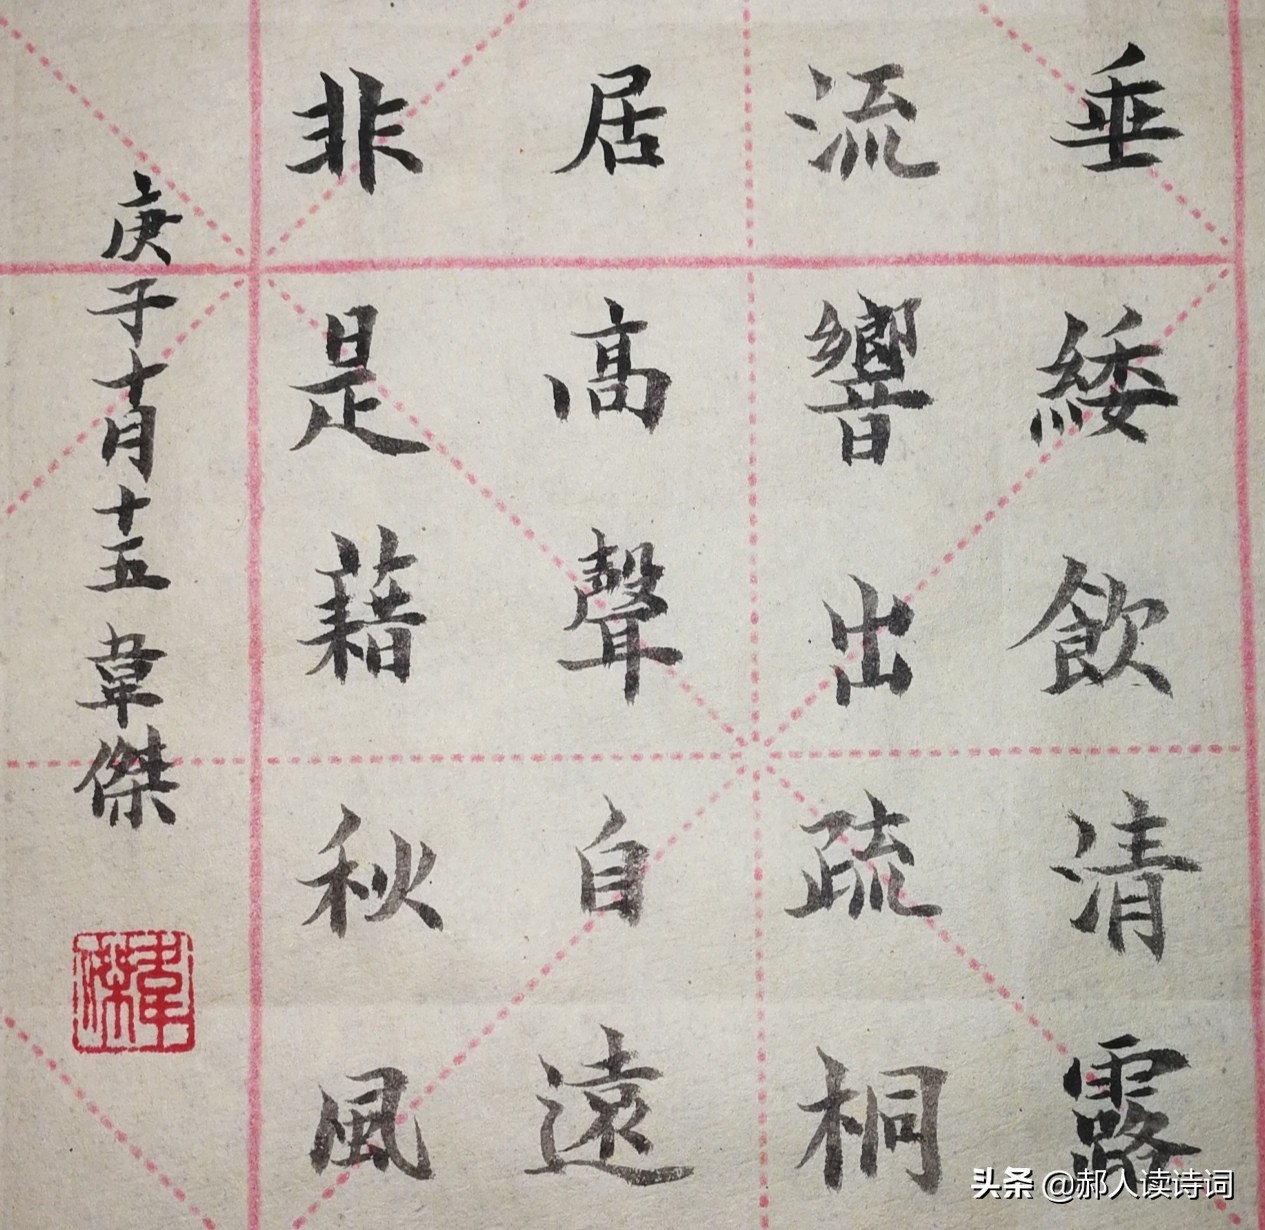 垂緌飲清露
流響出疏桐
居高聲自遠
非是藉秋風
庚子十月十五 韋傑
韋傑
头条 @郝人读诗词